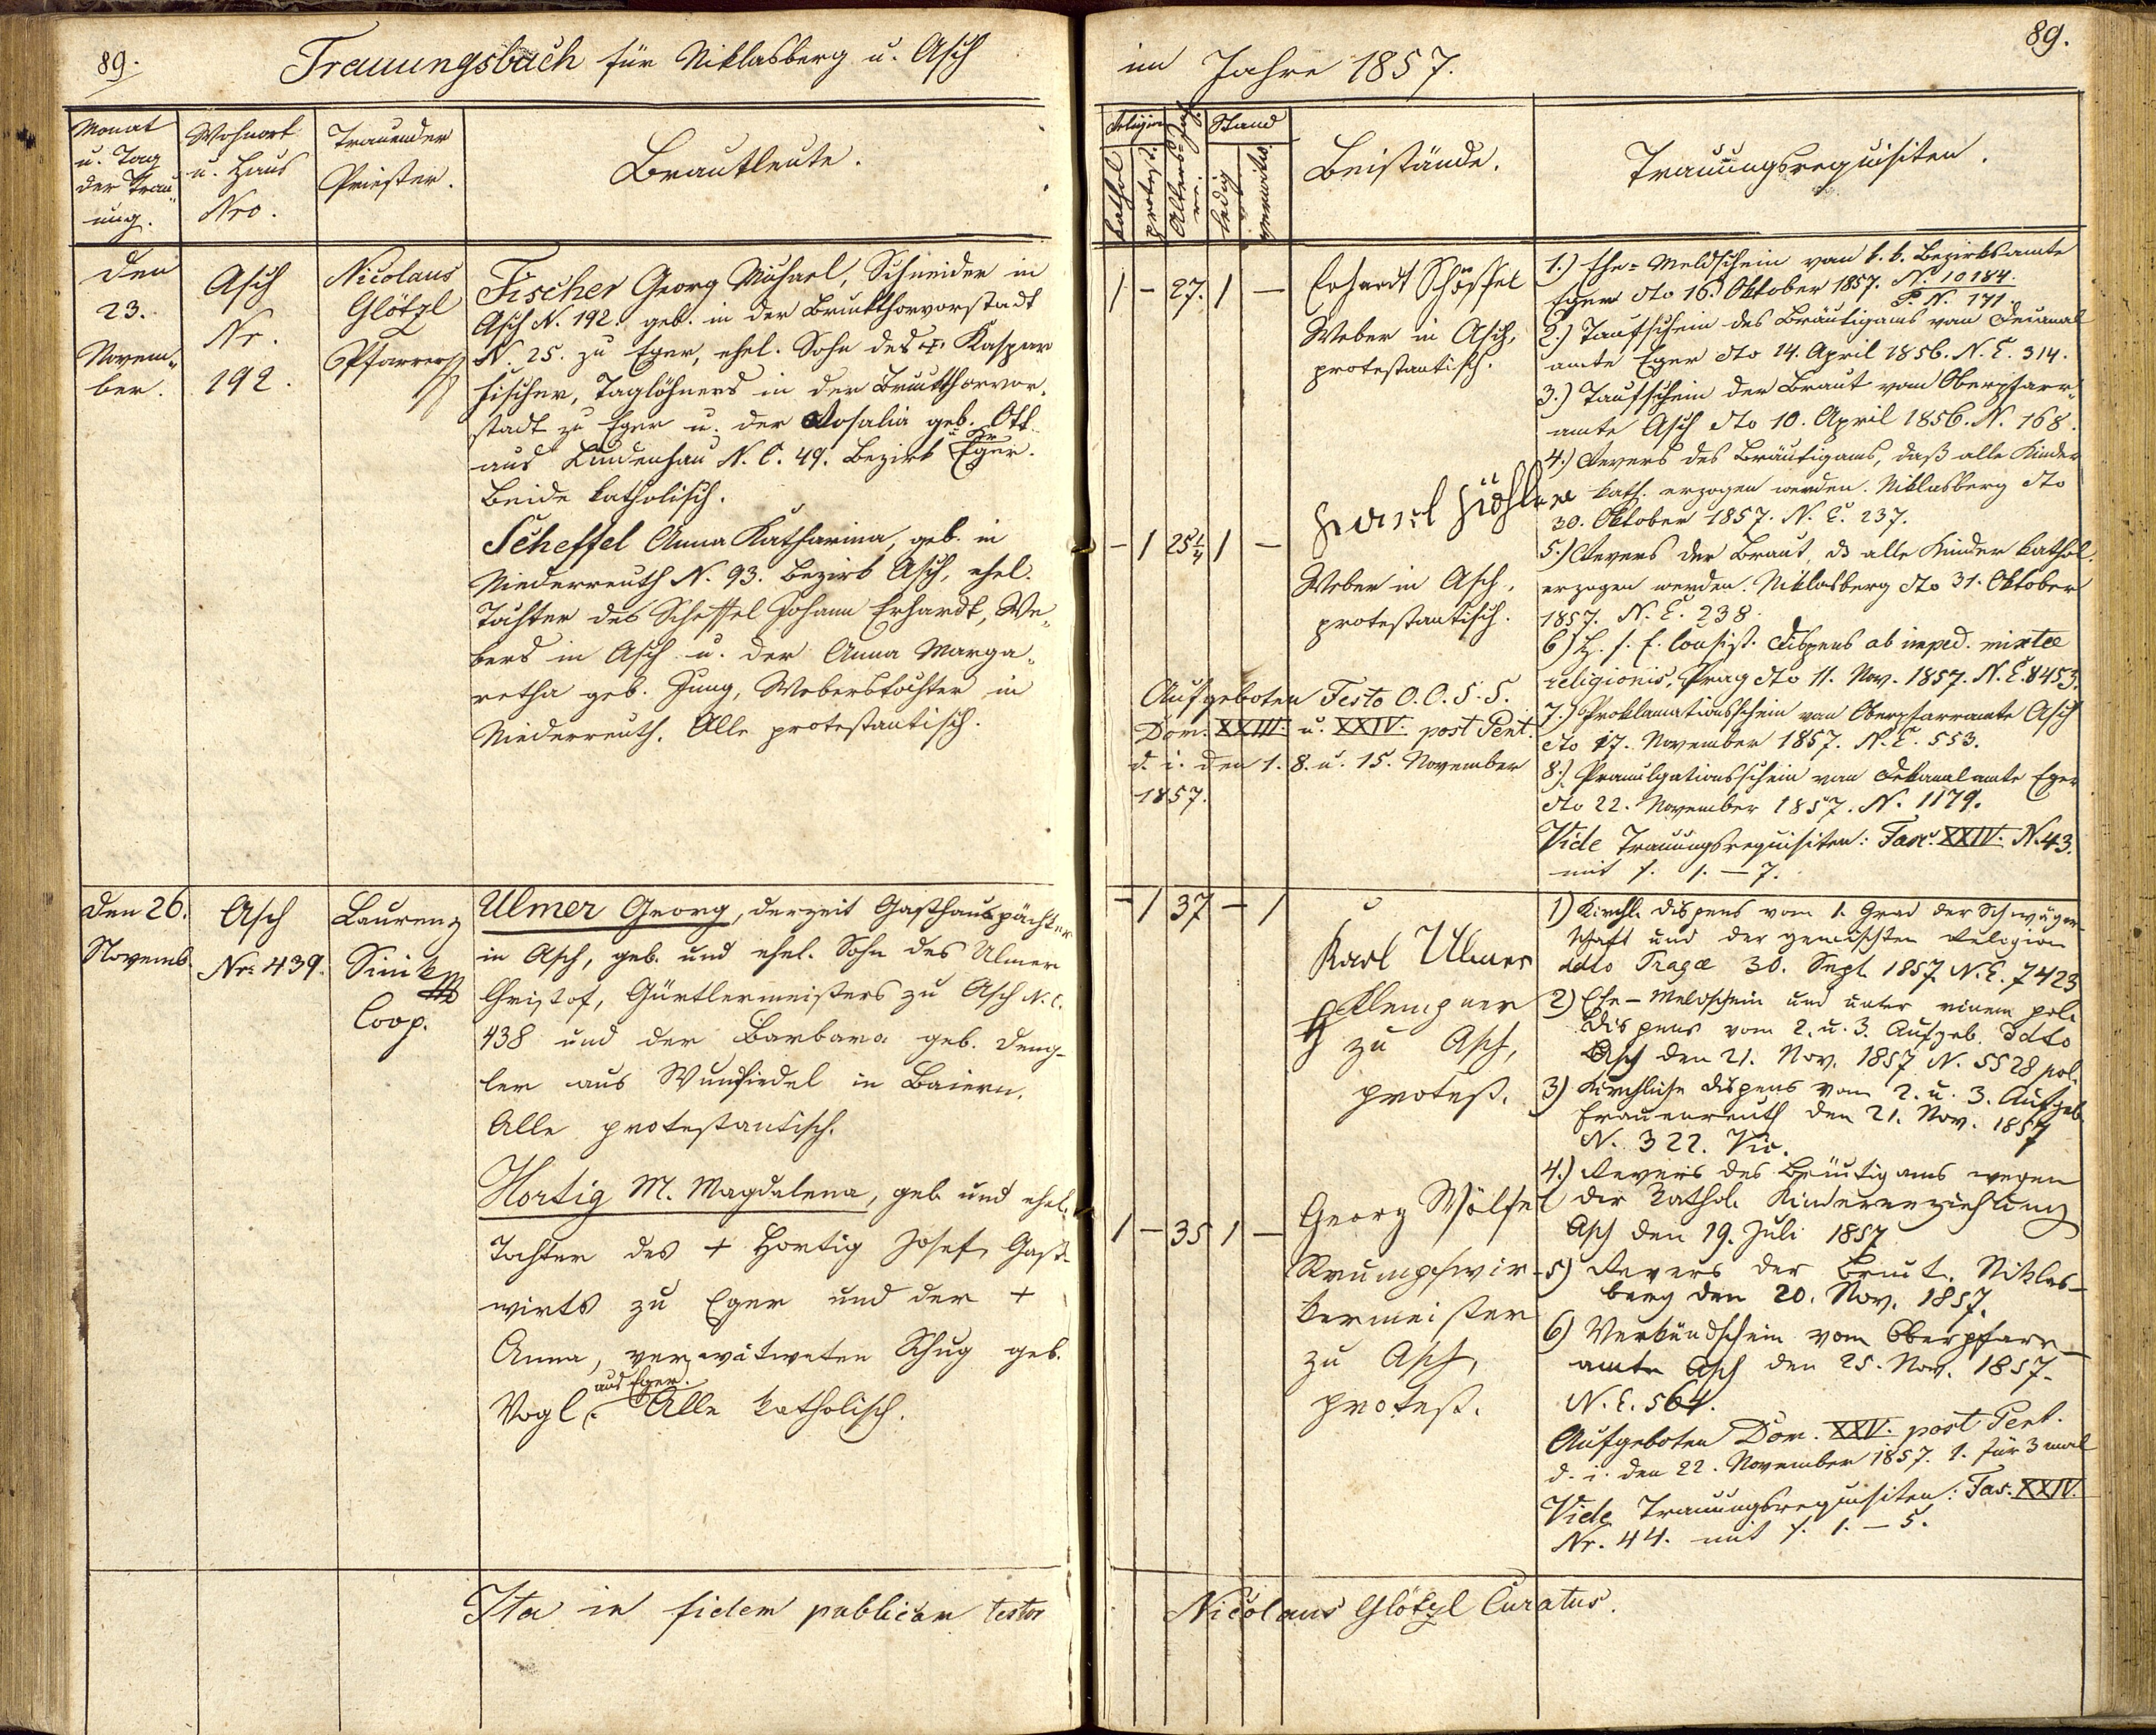 89.
Trauungsbuch für Niklasberg u. Asch
Monat
u. Tag
der Trau„
ung.
Wohnort
u. Haus
Nro.
Trauender
Priester.
Brautleute.
Den
23.
Novem„
ber.
Asch
Nr.
192.
Nicolaus
Glötzl
Pfarrer
Fischer Georg Michael, Schneider in
Asch N. 192. geb. in der Bruckthorvorstadt
N. 25. zu Eger, ehel. Sohn des † Kaspar
Fischer, Taglöhners in der Bruckthorvor„
stadt zu Eger u. der Rosalia geb. Ott
aus Lindenhau N. C. 49. Bezirk Eger.
Beide katholisch.
Scheffel Anna Katharina, geb. in
Niederreuth N. 93. Bezirk Asch, ehel.
Tochter des Scheffel Johann Erhardt, We„
bers in Asch u. der Anna Marga„
retha geb. Jung, Weberstochter in
Niederreuth. Alle protestantisch.
Den 26.
Novemb.
Asch
Nr. 439.
Laurenz
Sinik
Coop.
Ulmer Georg, derzeit Gasthauspächter
in Asch, geb. und ehel. Sohn des Ulmer
Christof, Gürtlermeisters zu Asch N. C.
438 und der Barbara geb. Deng-
ler aus Wunsiedel in Baiern.
Alle protestantisch.
Hortig M. Magdalena, geb. und ehel.
Tochter des + Hortig Josef, Gast-
wirts zu Eger und der +
Anna, verwitweten Schug geb.
aus Eger.
Vogl. Alle katholisch.
Ita in fidem publicam testor
89.
im Jahre 1857.
Religion
kathol
protest.
Alters-Jah
re.
Stand
ledig
verwitw.
Beistände.
Trauungsrequisiten.
1 - 27. 1 -
Erhardt Schöffel
Weber in Asch,
protestantisch.
- 1 25 1/4 1 -
Karl Höhlne
Weber in Asch,
protestantisch.
Aufgeboten Festo O. O. S. S.
Dom. XXIII. u. XXIV. post Pent.
d. i. den 1. 8. u. 15. November
1857.
1.) Ehe=Meldschein vom k. k. Bezirksamte
Eger dto 16. Oktober 1857. N. 10184.
P. N. 171.
2.) Taufschein des Bräutigams vom Decanal
amte Eger dto 14. April 1856. N. E. 314.
3.) Taufschein der Braut vom Oberpfarr„
amte Asch dto 10. April 1856. N. 168.
4.) Revers des Bräutigams, daß alle Kinder
kath. erzogen werden. Niklasberg dto
30. Oktober 1857. N. E. 237.
5.) Revers der Braut, ds alle Kinder kathol.
erzogen werden. Niklasberg dto 31. Oktober
1857. N. E. 238.
6) H. f. e. Consist. Dispens ab imped. mixtae
religionis, Prag dto 11. Nov. 1857. N. E. 8453.
7.) Proklamationsschein vom Oberpfarramte Asch
dto 17. November 1857. N. E. 553.
8.) Promulgationsschein vom Dekanalamte Eger
dto 22. November 1857. N. 1179.
Vide Trauungsrequisiten: Fasc. XXIV. N. 43.
mit /. 1. - 7.
- 1 37 - 1
Karl Ulmer
Klempner
zu Asch,
protest.
1 - 35 1 -
Georg Wölfel
Strumpfwir-
kermeister
zu Asch,
protest.
1) Kirchl. Dispens vom 1. Grad der Schwäger-
schaft und der gemischten Religion
ddto Pragae 30. Sept. 1857 N. E. 7423
2) Ehe-Meldschein und unter einem pol.
Dispens vom 2. u. 3. Aufgeb. ddto
Asch den 21. Nov. 1857 N. 5528 pol.
3) Kirchliche Dispens vom 2. u. 3. Aufgeb.
Frauenreuth den 21. Nov. 1857
N. 322. Vic.
4.) Revers des Bräutigams wegen
der kathol. Kindererziehung
Asch den 19. Juli 1857
5) Revers der Braut. Niklas-
berg den 20. Nov. 1857.
6) Verkündschein vom Oberpfarr-
amte Asch den 25. Nov. 1857.
N. E. 564.
Aufgeboten Dom. XXV. post Pent.
d. i. den 22. November 1857. 1. für 3mal
Vide Trauungsrequisiten: Fas. XXIV.
Nr. 44. mit /. 1. - 5.
Nicolaus Glötzl Curatus.